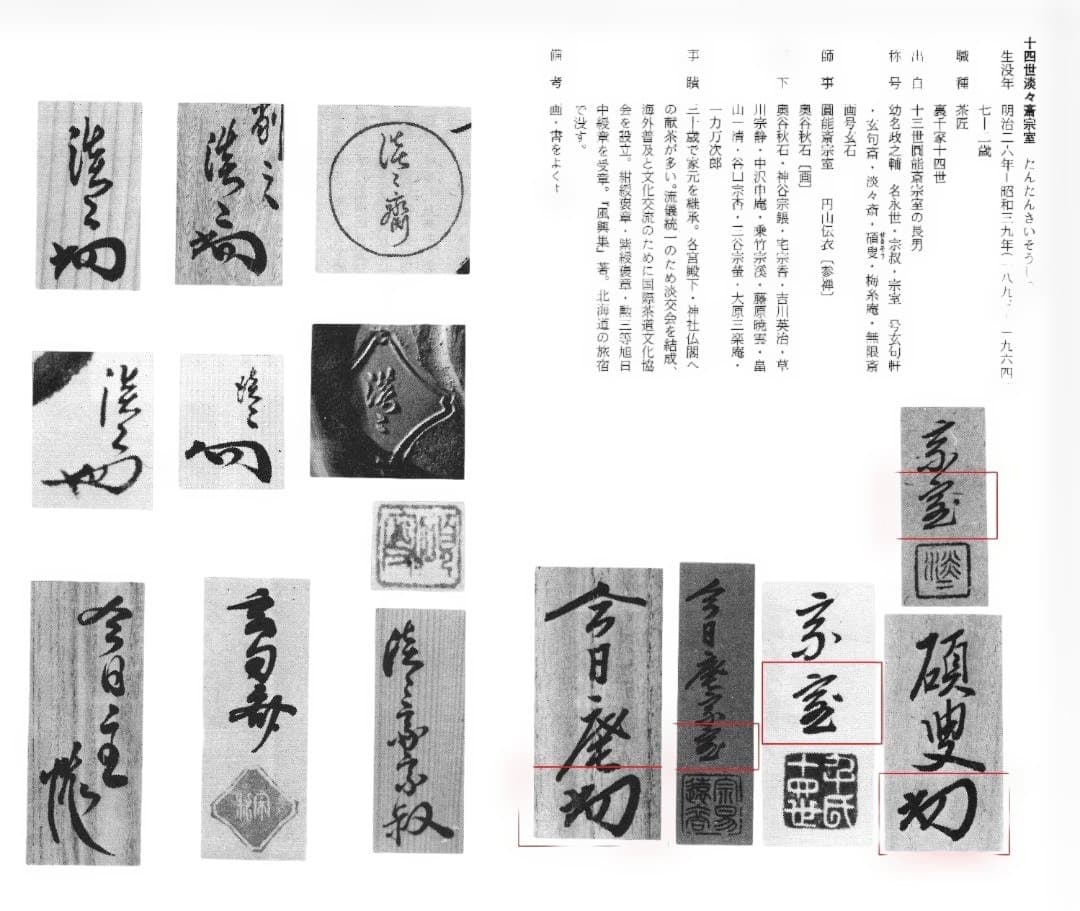 十四世淡々斎宗室 たんたんさいそうし
生没年 明治二六年ー昭和三九年(一八九 一九六四
七十一歳
職種 茶匠
裏千家十四世
出自 十三世圓能斎宗室の長男
称号 幼名政之輔 名永世・宗叔・宗室 号玄句軒
・玄句斎・淡々斎・碩叟・梅糸庵・無限斎
せきそう
画号玄石
師事 圓能斎宗室 円山伝衣〔参禅〕
奥谷秋石〔画〕
下 奥谷秋石・神谷宗・宅宗香・吉川英治・草
川宗静・中沢中庵・乗竹宗溪・藤原暁雲・畠
山一清・谷口宗杏・二谷宗螢・大原三楽庵・
一力万次郎
事蹟 三十歳で家元を継承。各宮殿下・神社仏閣へ
の献茶が多い。流儀統一のため淡交会を結成、
海外普及と文化交流のために国際茶道文化協
会を設立。紺綬褒章・紫綬褒章・勲三等旭日
中綬章を受章。『風興集』著。北海道の旅宿
で没す。
備考 画・書をよくす
宗室
淡々
碩叟
宗室
千氏十四世
今日庵宗室
今日庵
淡々斎
淡々
碩叟
淡々斎宗叔
淡々
淡々
玄句斎
淡々
淡々
今日主